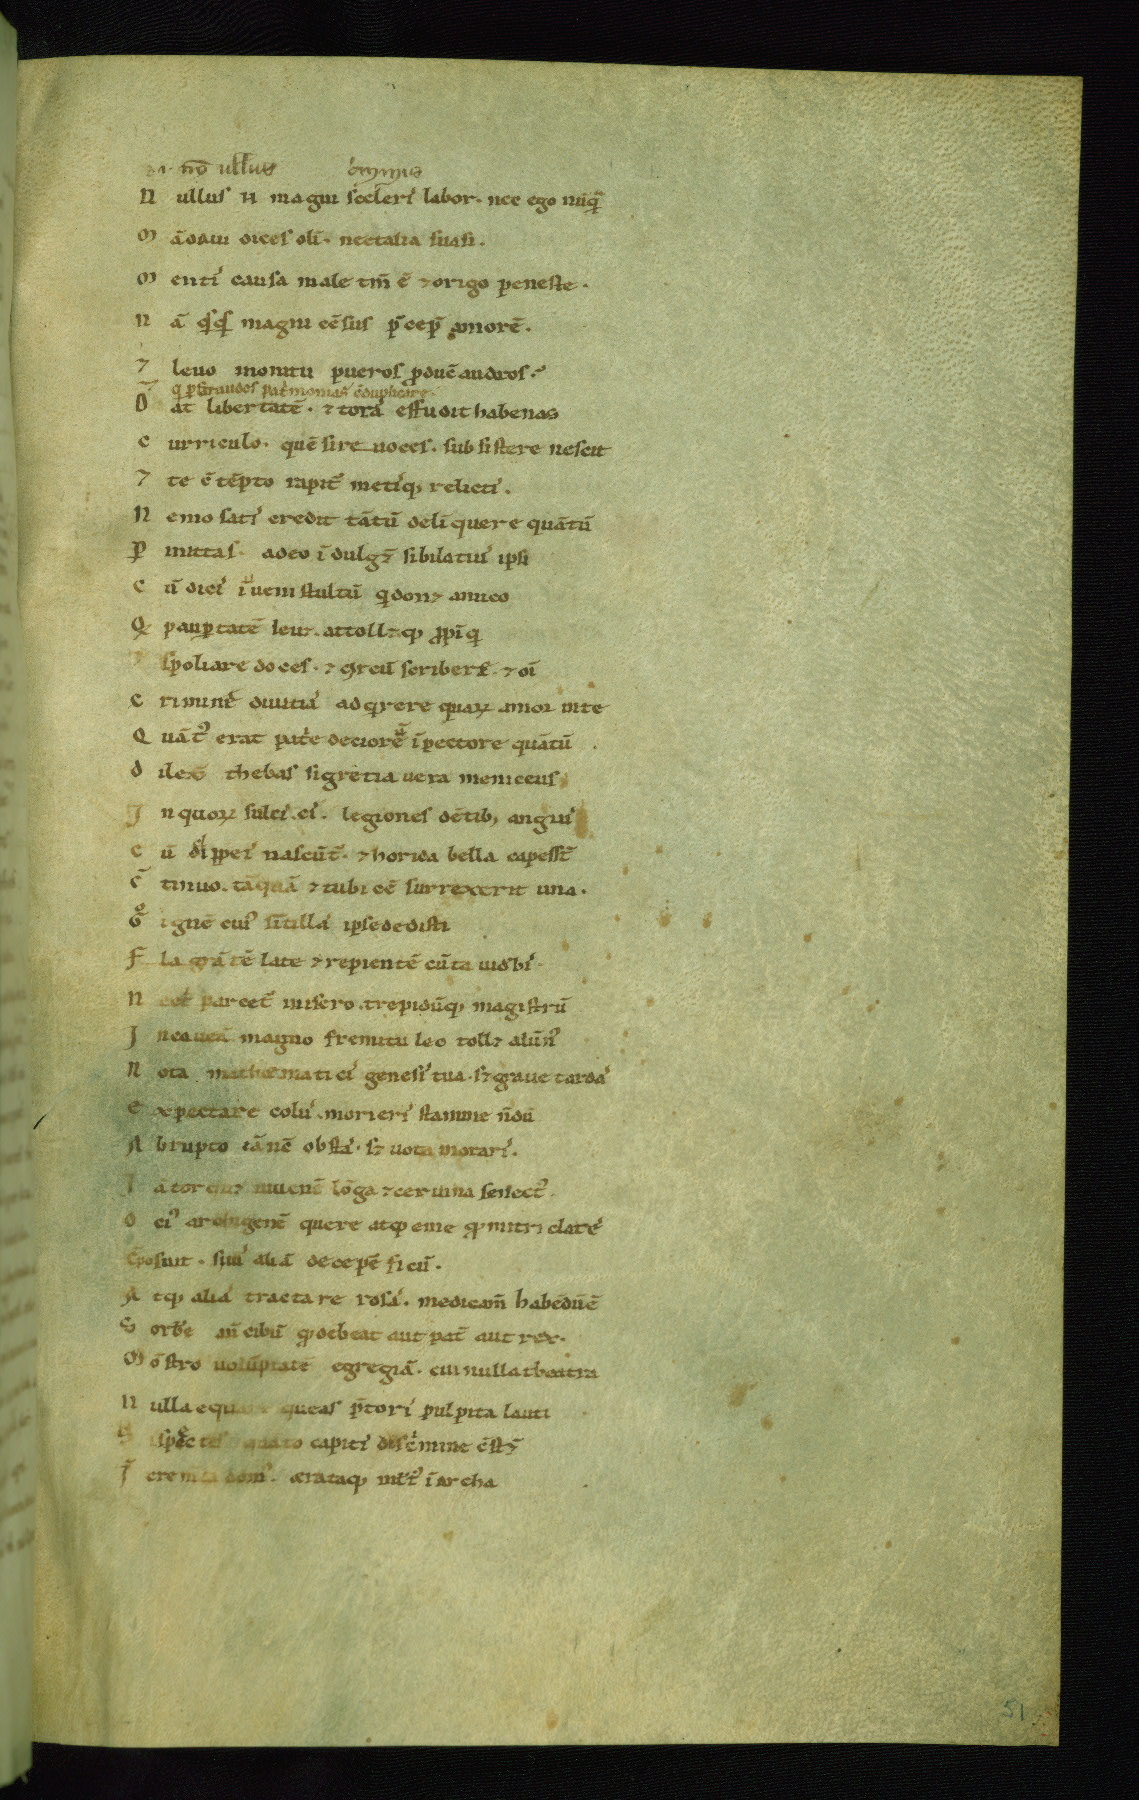 nō ullus omnis
N ullus n̄ magni sceleri' labor. nec ego nūq̄
M ādaui dices oli'. nec talia suasi.
M enti' causa male tm̄ ē ⁊ origo penes te.
N ā q̇sq̇s magni cēsus p̄cep̄ amorē.
⁊ leuo monitu pueros ꝓducē auaros.
D at libertatē. ⁊ tota' effudit habenas
C urriculo. quē si reuoces. subsistere nescit
⁊ te ꝯtēpto rapit' meti'q; relicti'.
N emo sati' credit tātū deli̅quere quātū
P̱ mittas. adeo ī dulgēt sibi latiu' ipsi
C ū dici' iuueni stultū q̇ donet amico
Q̇ paup̱tatē leuet. attollatq; ꝓpi̅q̇
⁊ spoliare doces. ⁊ circū scribere. ⁊ oi̅
C rimine diuitia' adq̇rere quaꝝ amor in te
Q uāt' erat pat'e decioꝝ ī pectore quātū
D ilexit thebas si gretia uera meniceus
I n quoꝝ sulci' ci'. legiones dētib; angui'
C ū clipei' nascūt'. ⁊ horrida bella capessūt
C̄ tinuo. tāquā ⁊ tubicē surrexerit una.
G̊ ignē cui' scītilla' ipse dedisti
F lagrātē late ⁊ rapientē cūcta uidebi'.
N ec t' parcet' misero. trepidūq; magistrū
I n cauea magno fremitu leo tollet alūn'
N ota mathematici' genesi' tua. s; graue tarda'
E xpectare colu'. morieri' stamine n̄dū
A brupto iā nc̄ obsta'. s; uota morari'.
I ā torquet iuuenē lōga ⁊ ceruina senect'.
O ci' archigenē quere atq; eme q̇ mitridate'
C̄posuit. si ui' aliā decerpe̅ ficū.
A tq; alia' tractare rosa'. medicam̄ habēdū ē
S orbe' an̄ cibū q̇ debeat aut pat' aut rex.
M ōstro uoluptatē egregiā. cui nulla theatra
N ulla equare queas p̄tori' pulpita lauti
S i spectes quāto capiti' discrimine cōstēt
I̅ crem̄ta dom'. ærataq; mlt' ī archa
51